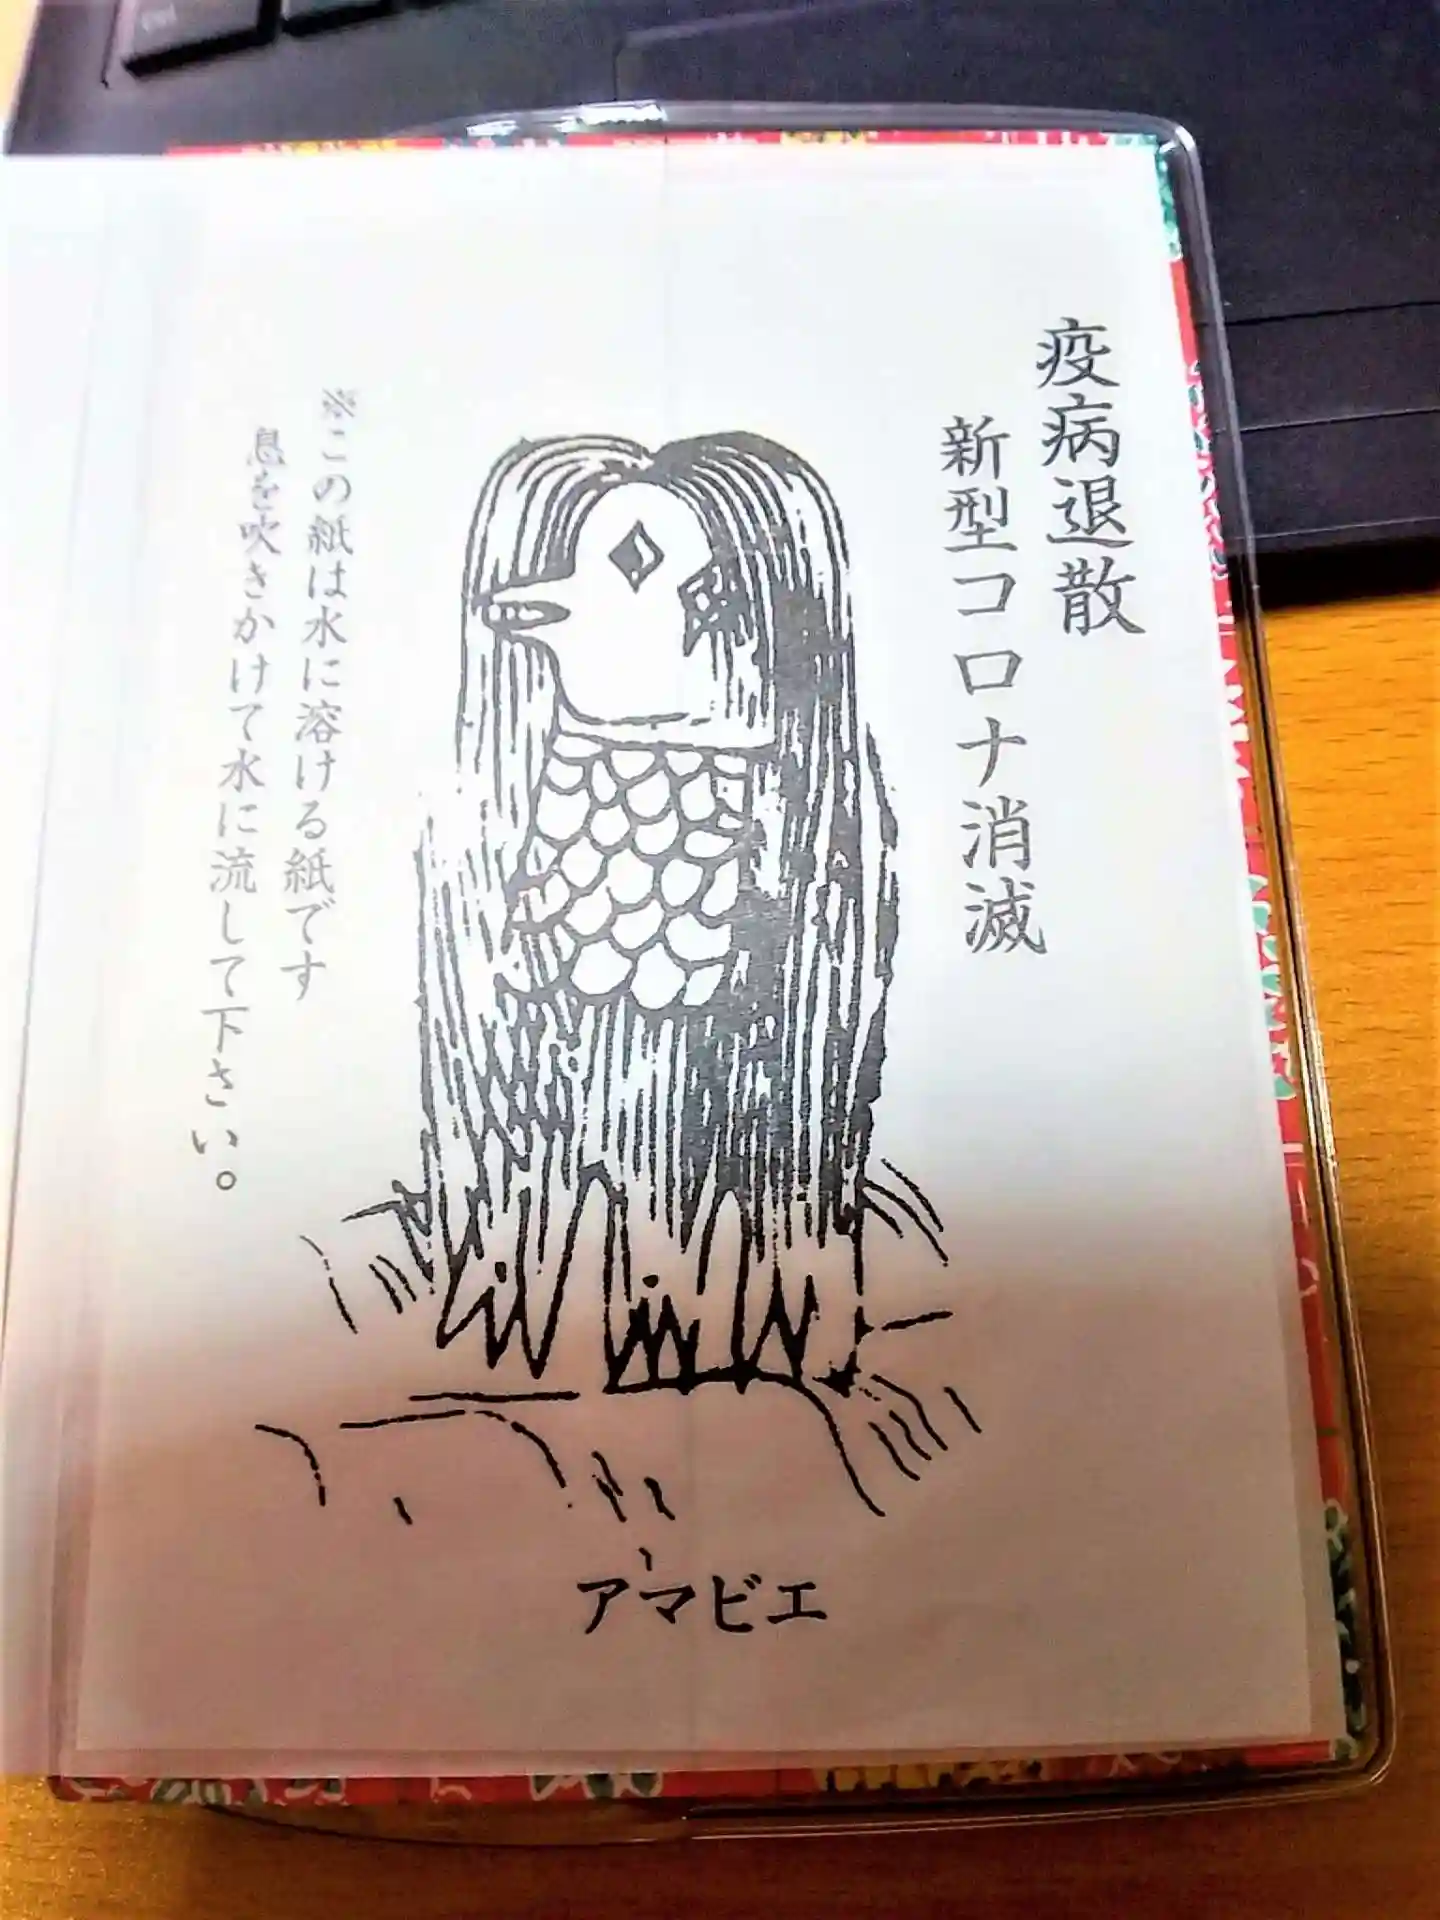 疫病退散
新型コロナ消滅
※この紙は水に溶ける紙です
息を吹きかけて水に流して下さい。
アマビエ